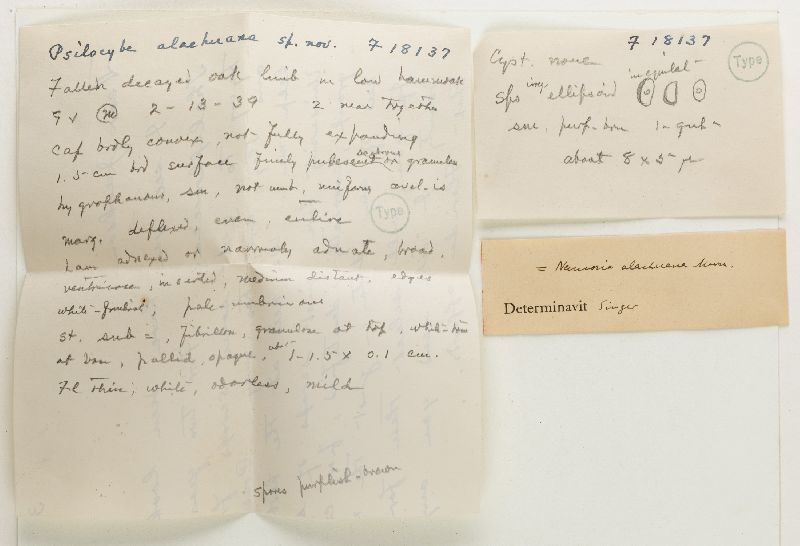 Psilocybe alachuana sp. nov. F 18137
Fallen decayed oak limb in low hammock
2-13-39 2 near together
Cap brdly convex, not fully expanding
1.5 cm brd surface finely pubescent or granulose
hygrophanous, sm, not umb, uniform avel-is
marg. deflexed, even, entire
Type
Lam adnexed or narrowly adnate, broad,
ventricose, inserted, medium distant, edges
white-fimbriate; pale-umbrinous
St. sub =, fibrillose, granulose at top, white-tom
at base, pallid, opaque, 1-1.5 x 0.1 cm.
Fl thin, white, odorless, mild
Spores purplish-brown
F 18137
Cyst. none
Type
inequilat-
Sps irreg ellipsoid
sm, purp-brn 1-gut-
about 8 x 5 μ
= Naucoria alachuana Murr.
Determinavit Singer